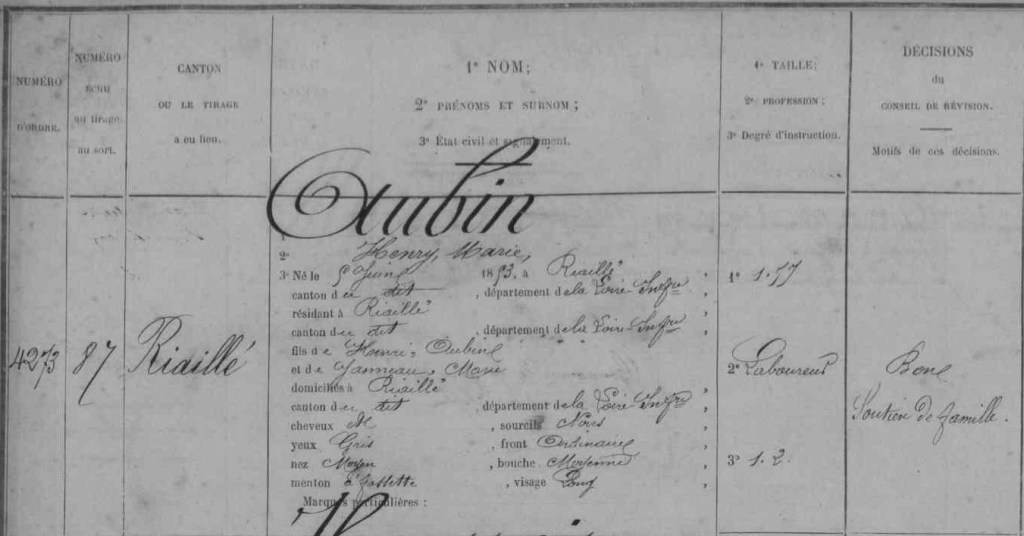 NUMÉRO
D'ORDRE.
NUMÉRO
ÉCHU
au tirage
au sort.
CANTON
OU LE TIRAGE
a eu lieu.
1° NOM;
2° PRÉNOMS ET SURNOM;
3° État civil et signalement.
1° TAILLE;
2° PROFESSION;
3° Degré d'instruction.
DÉCISIONS
du
CONSEIL DE RÉVISION.
Motifs de ces décisions.
4273
87
Riaillé
Aubin
1°
2° Henry, Marie,
3° Né le 5 Juin 1853, à Riaillé,
canton du dit, département de la Loire Infre,
résidant à Riaillé
canton du dit, département de la Loire Infre,
fils de Henri Aubin
et de Janneau, Marie
domiciliés à Riaillé,
canton du dit, département de la Loire Infre,
cheveux N, sourcils Noirs,
yeux Gris, front Ordinaire,
nez Moyen, bouche Moyenne,
menton à fossette, visage Long,
Marques particulières :
1°
2° Laboureur
3° 1.2.
Bon
Soutien de famille.